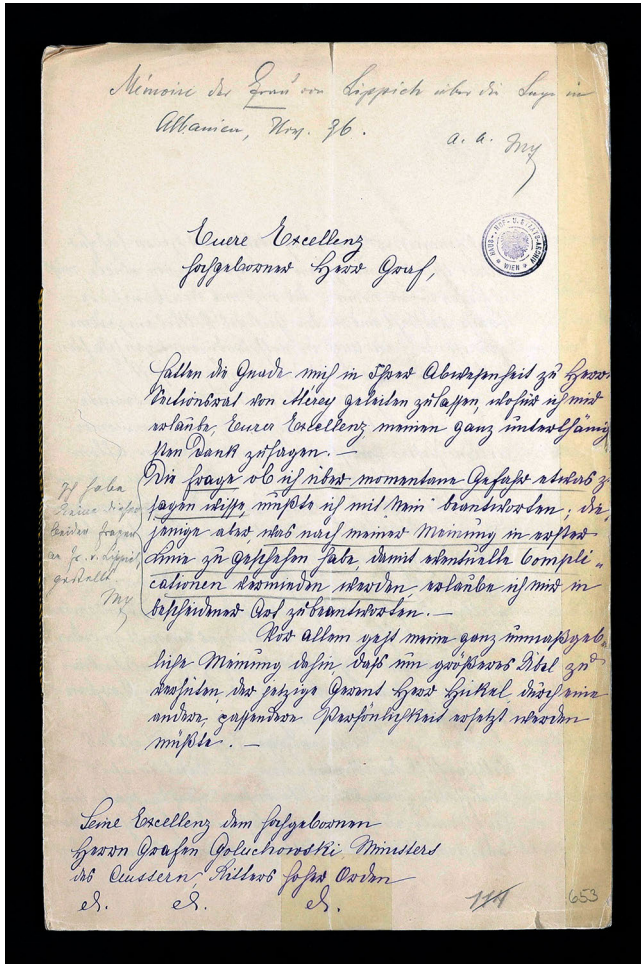 Mémoire der Frau von Lippich über die Lage in
Albanien, Nov. 96.
a. a. My
HAUS-, HOF- U. STAATS-ARCHIV
WIEN
Euere Excellenz
hochgeborner Herr Graf,
hatten die Gnade mich in Ihrer Abwesenheit zu Herrn
Sectionsrat von Mérey geleiten zulassen, wofür ich mir
erlaube, Eurer Excellenz, meinen ganz unterthänig
sten Dank zusagen. —
Die Frage ob ich über momentane Gefahr etwas zu
sagen wisse, mußte ich mit "Nein" beantworten; die,
jenige aber, was nach meiner Meinung in erster
Linie zu geschehen habe, damit eventuelle Compli=
cationen vermieden werden, erlaube ich mir in
bescheidener Art zubeantworten. —
Ich habe
keine dieser
beiden Fragen
an Fr. v. Lippich
gestellt.
My
Vor allem geht meine ganz unmaßgeb=
liche Meinung dahin, daß um größeres Übel zu
verhüten, der jetzige Gerent Herr Hickel, durch eine
andere, passendere Persönlichkeit ersetzt werden
müßte. —
Seine Excellenz dem hochgebornen
Herrn Grafen Goluchowski, Ministers
des Äussern, Ritters hoher Orden
653